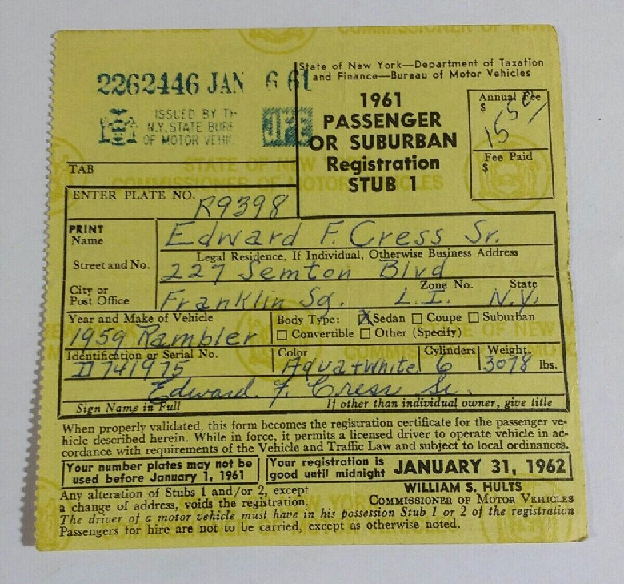 State of New York—Department of Taxation
and Finance—Bureau of Motor Vehicles
2262446 JAN 6 61
ISSUED BY TH
N.Y. STATE BURE
OF MOTOR VEHIC
1961
PASSENGER
OR SUBURBAN
Registration
STUB 1
Annual Fee
$ 15 50
Fee Paid
$
TAB
STATE OF NEW YORK
COMMISSIONER OF MOTOR VEHICLES
ENTER PLATE NO. R9398
PRINT
Name Edward F. Cress Sr.
Legal Residence, If Individual, Otherwise Business Address
Street and No. 227 Semton Blvd
City or Zone No. State
Post Office Franklin Sq. L.I. N.Y.
Year and Make of Vehicle Body Type: X Sedan Coupe Suburban
1959 Rambler Convertible Other (Specify)
Identification or Serial No. Color Cylinders Weight
D741975 Aqua+White 6 3078 lbs.
Edward F. Cress Sr.
Sign Name in Full If other than individual owner, give title
When properly validated, this form becomes the registration certificate for the passenger ve-
hicle described herein. While in force, it permits a licensed driver to operate vehicle in ac-
cordance with requirements of the Vehicle and Traffic Law and subject to local ordinances.
Your number plates may not be
used before January 1, 1961
Your registration is
good until midnight JANUARY 31, 1962
Any alteration of Stubs 1 and/or 2, except
a change of address, voids the registration.
WILLIAM S. HULTS
COMMISSIONER OF MOTOR VEHICLES
The driver of a motor vehicle must have in his possession Stub 1 or 2 of the registration
Passengers for hire are not to be carried, except as otherwise noted.